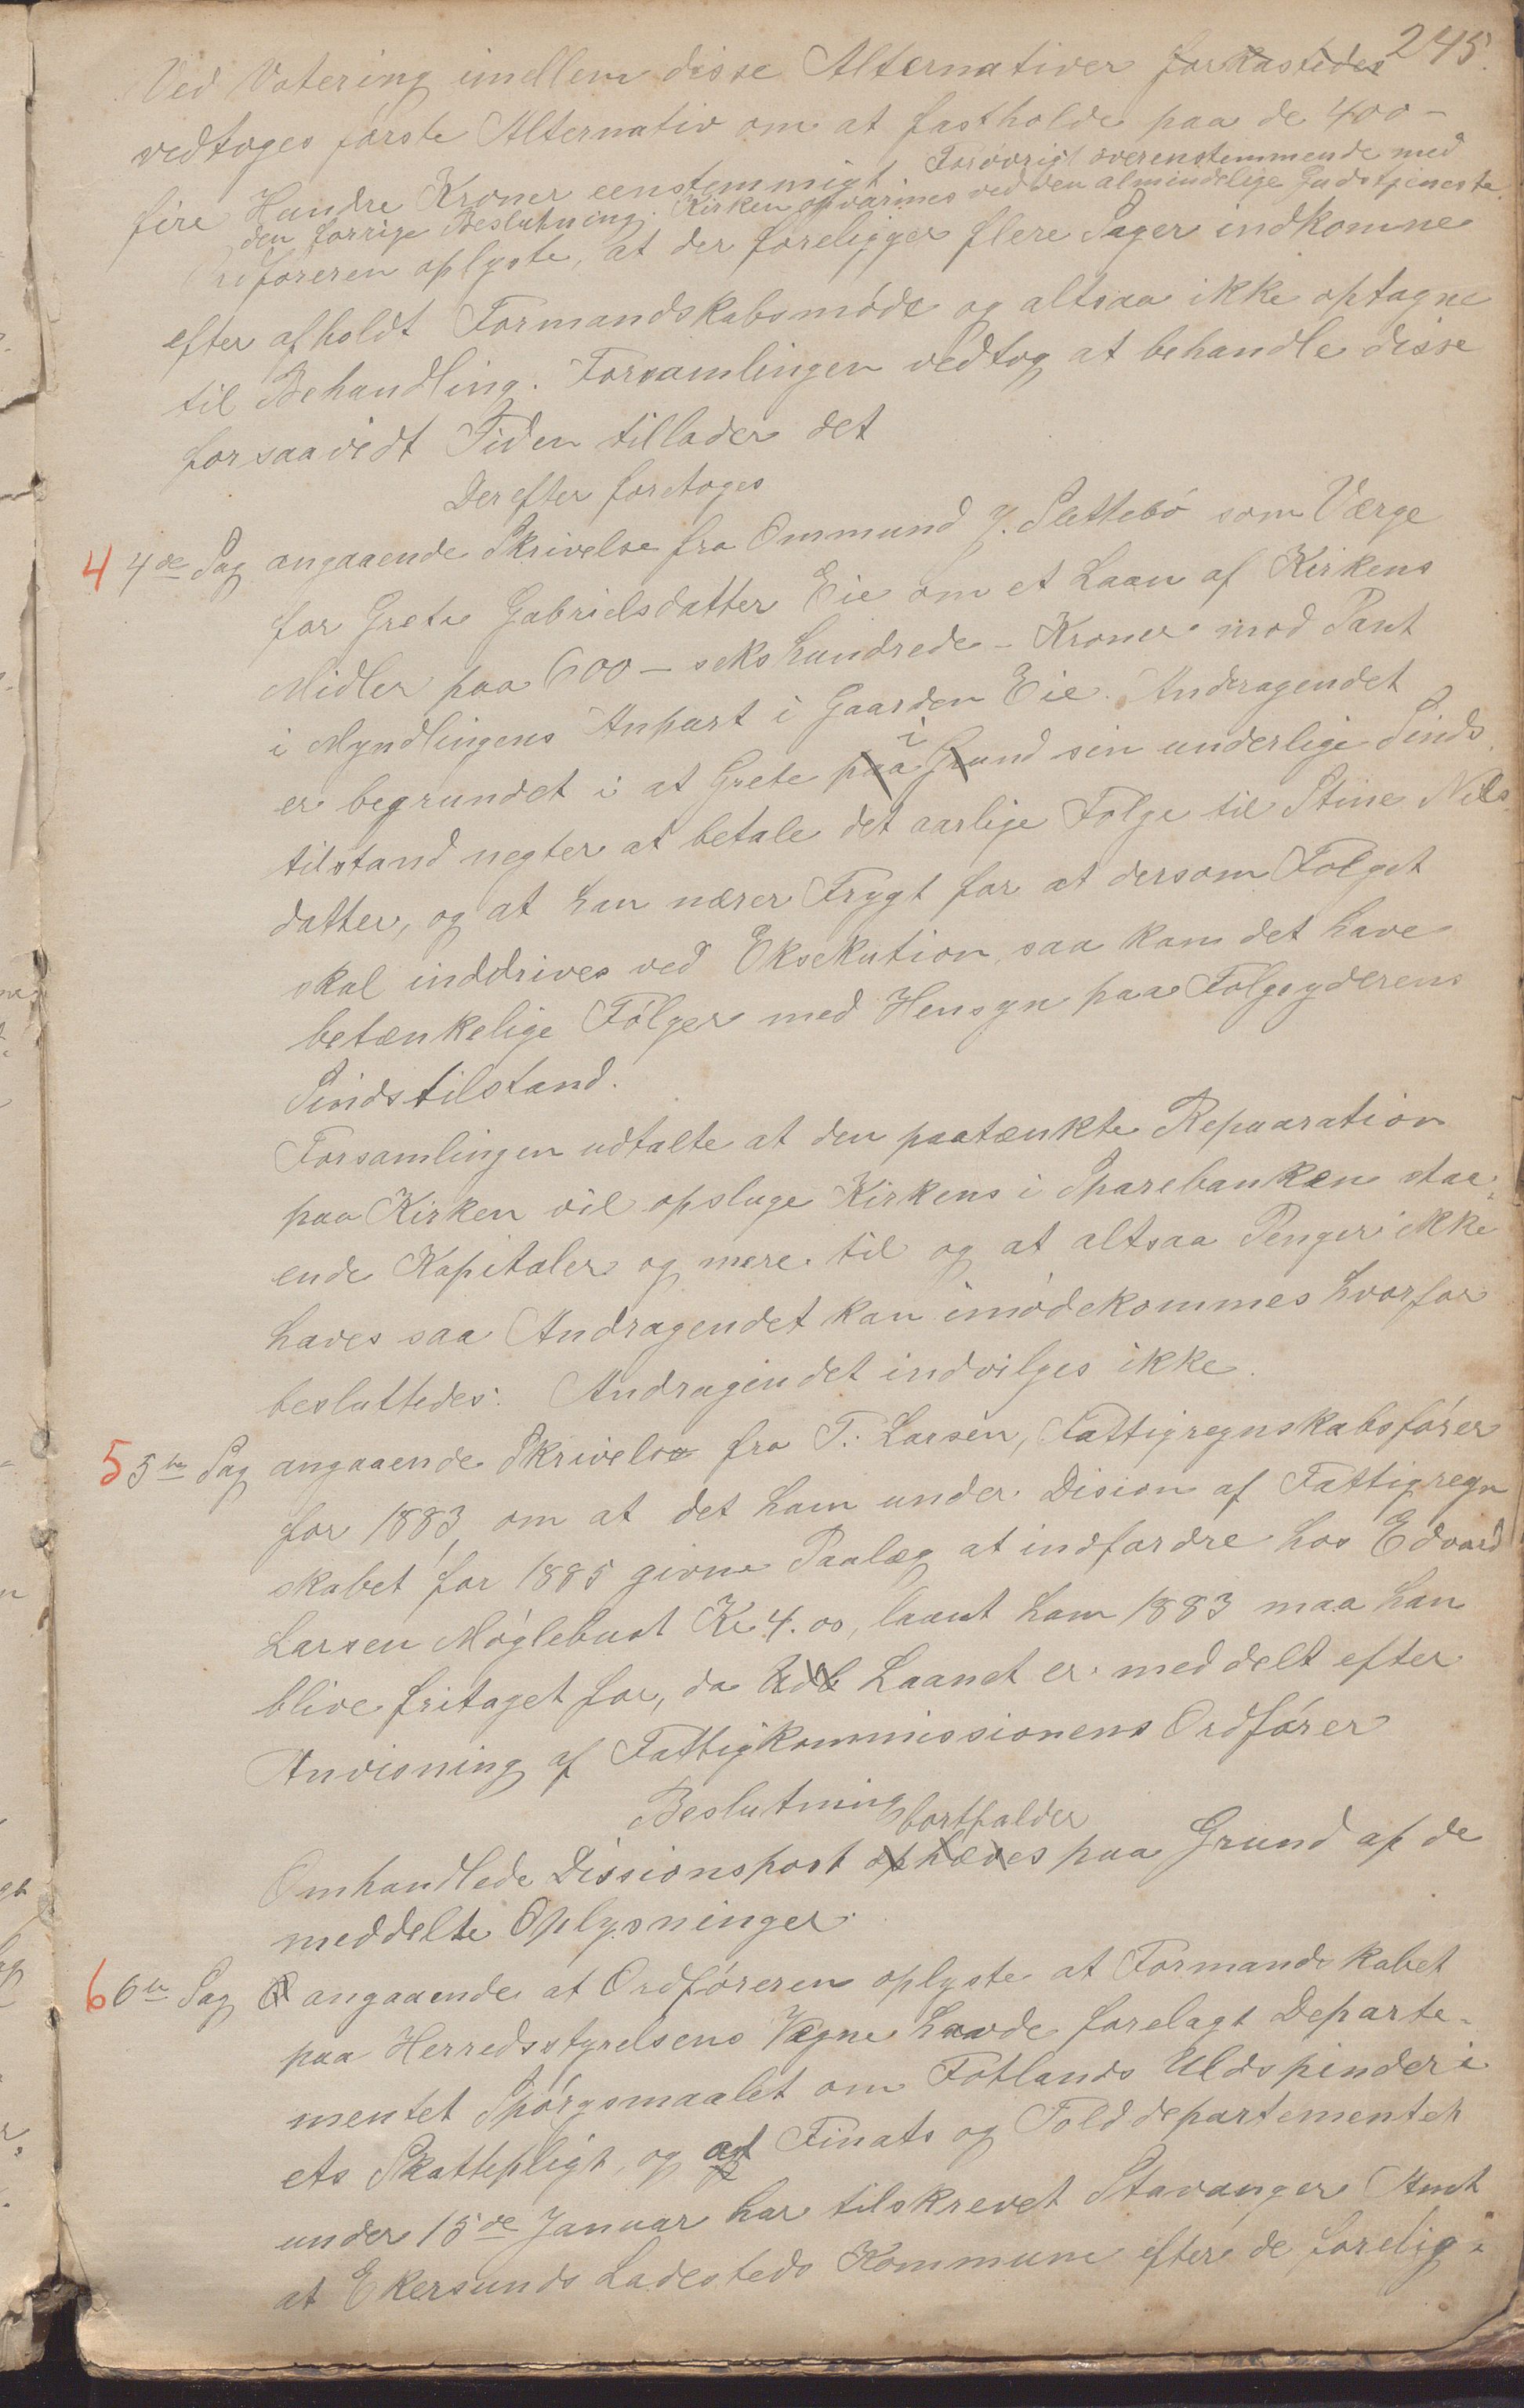 245.
Ved Votering imellem disse Alternativer forkastedes
vedtoges første Alternativ om at fastholde paa de 400 -
fire Hundre Kroner eenstemmigt. Forøvrigt overenstemmende med
den forrige Beslutning. Kirken opvarmes ved den almindelige Gudstjeneste.
Ordføreren oplyste, at der foreligger flere Sager indkomne
efter afholdt Formandskabsmøde og altsaa ikke optagne
til Behandling. Forsamlingen vedtog at behandle disse
forsaavidt Tiden tillader det
Derefter foretoges
4 4de Sag angaaende Skrivelse fra Ommund J. Slettebø som Værge
for Grete Gabrielsdatter Eie om et Laan af Kirkens
Midler paa 600 - sekshundrede - Kroner mod Pant
i Myndlingens Anpart i Gaarden Eie. Andragendet
er begrundet i at Grete paa Grund i sin underlige Sinds
tilstand negter at betale det aarlige Følge til Stine Nils
datter, og at han nærer Frygt for at dersom Følget
skal inddrives ved Eksekution, saa kan det have
betænkelige Følger med Hensyn paa Følgeyderens
Sindstilstand.
Forsamlingen udtalte at den paatænkte Reparation
paa Kirken vil opsluge Kirkens i Sparebanken staa-
ende Kapitaler og mere til og at altsaa Penger ikke
haves saa Andragendet kan imødekommes hvorfor
besluttedes: Andragendet indvilges ikke.
5 5te Sag angaaende Skrivelse fra T. Larsen, Fattigregnskabsfører
for 1883, om at det ham under Dision af Fattigregn
skabet for 1885 givne Paalæg at indfordre hos Edvard
Larsen Møglebust Kr 4.00, laant ham 1883 maa han
blive fritaget for, da Laanet er meddelt efter
Anvisning af Fattigkommissionens Ordfører
Beslutning
bortfalder
Omhandlede Dissionspost ophæves paa Grund af de
meddelte Oplysninger.
6 6te Sag angaaende at Ordføreren oplyste at Formandskabet
paa Herredsstyrelsens Vegne havde forelagt Departe-
mentet Spørgsmaalet om Fotlands Uldspinderi
ets Skattepligt, og at Finats og Tolddepartementet
under 15de Januar har tilskrevet Stavanger Amt
at Ekersunds Ladesteds Kommune efter de forelig-